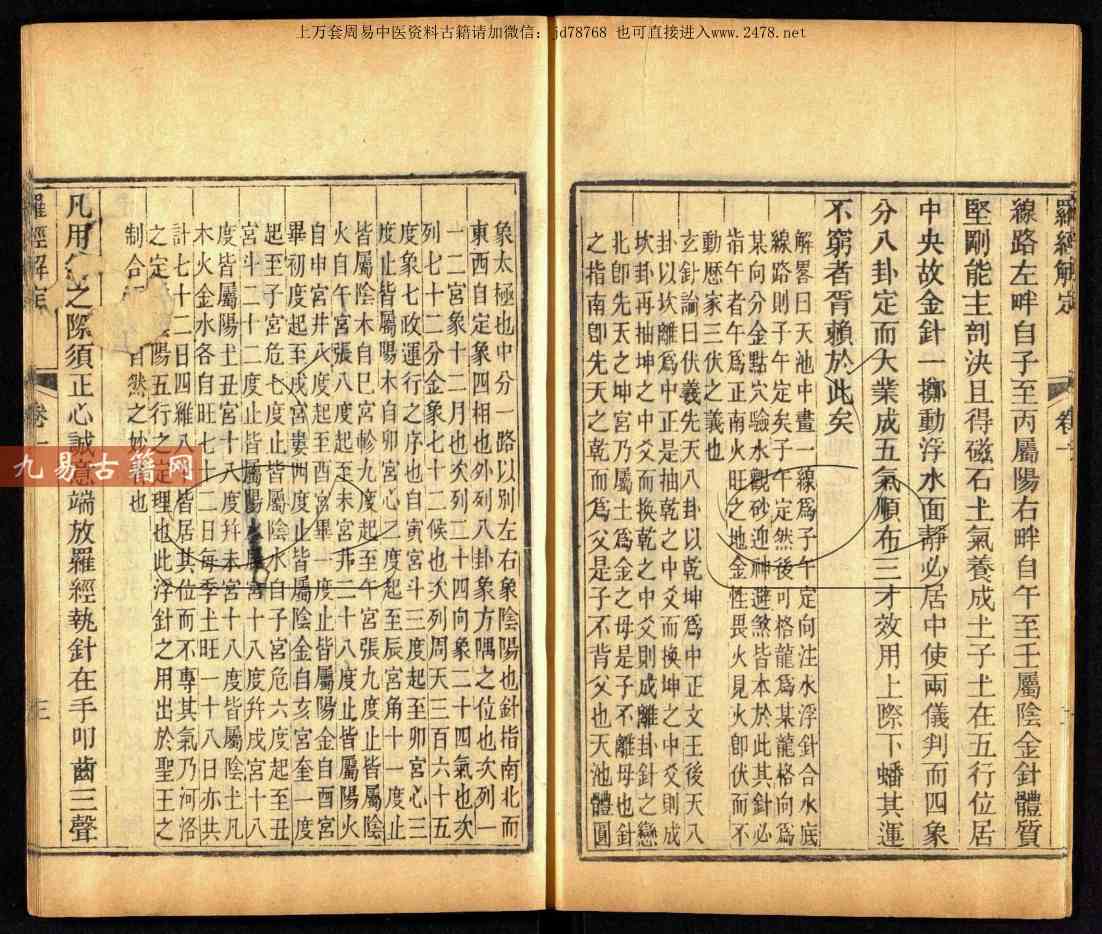 上万套周易中医资料古籍请加微信：jd78768 也可直接进入www.2478.net
羅經解定 卷一
線路左畔自子至丙屬陽右畔自午至壬屬陰金針體質
堅剛能主剖決且得磁石土氣養成土子土在五行位居
中央故金針一擲動浮水面靜必居中使兩儀判而四象
分八卦定而大業成五氣順布三才效用上際下蟠其運
不窮者胥賴於此矣
解畧曰天池中畫一線爲子午定向注水浮針合水底
線路則子午定矣子午定然後可格龍爲某龍格向爲
某向分金點穴驗水觀砂迎神避煞皆本於此其針必
指午者午爲正南火旺之地金性畏火見火卽伏而不
動歷家三伏之義也
玄針論曰伏義先天八卦以乾坤爲中正文王後天八
卦以坎離爲中正是抽乾之中爻而換坤之中爻則成
坎卦再抽坤之中爻而換乾之中爻則成離卦針之戀
北卽先天之坤宮乃屬土爲金之母是子不離母也針
之指南卽先天之乾而爲父是子不背父也天池體圓
象太極也中分一路以別左右象陰陽也針指南北而
東西自定象四相也外列八卦象方隅之位也次列一
十二宮象十二月也次列二十四向象二十四氣也次
列七十二分金象七十二候也次列周天三百六十五
度象七政運行之序也自寅宮斗三度起至卯宮心三
度止皆屬陽木自卯宮心二度起至辰宮角十一度止
皆屬陰木自巳宮軫九度起至午宮張九度止皆屬陰
火自午宮張八度起至未宮井二十八度止皆屬陽火
自申宮井八度起至酉宮畢一度止皆屬陽金自酉宮
畢初度起至戌宮婁四度止皆屬陰金自亥宮奎一度
起至子宮危七度止皆屬陰水自子宮危六度起至丑
宮斗二十二度止皆屬陽水辰宮十八度幷戌宮十八
度皆屬陽土丑宮十八度幷未宮十八度皆屬陰土凡
木火金水各自旺七十二日每季土旺一十八日亦共
計七十二日四維八 皆居其位而不專其氣乃河洛
之定 陽五行之定理也此浮針之用出於聖王之
制合 自然之妙者也
凡用 之際須正心誠意端放羅經執針在手叩齒三聲
羅經解定 卷一 三
九易古籍网